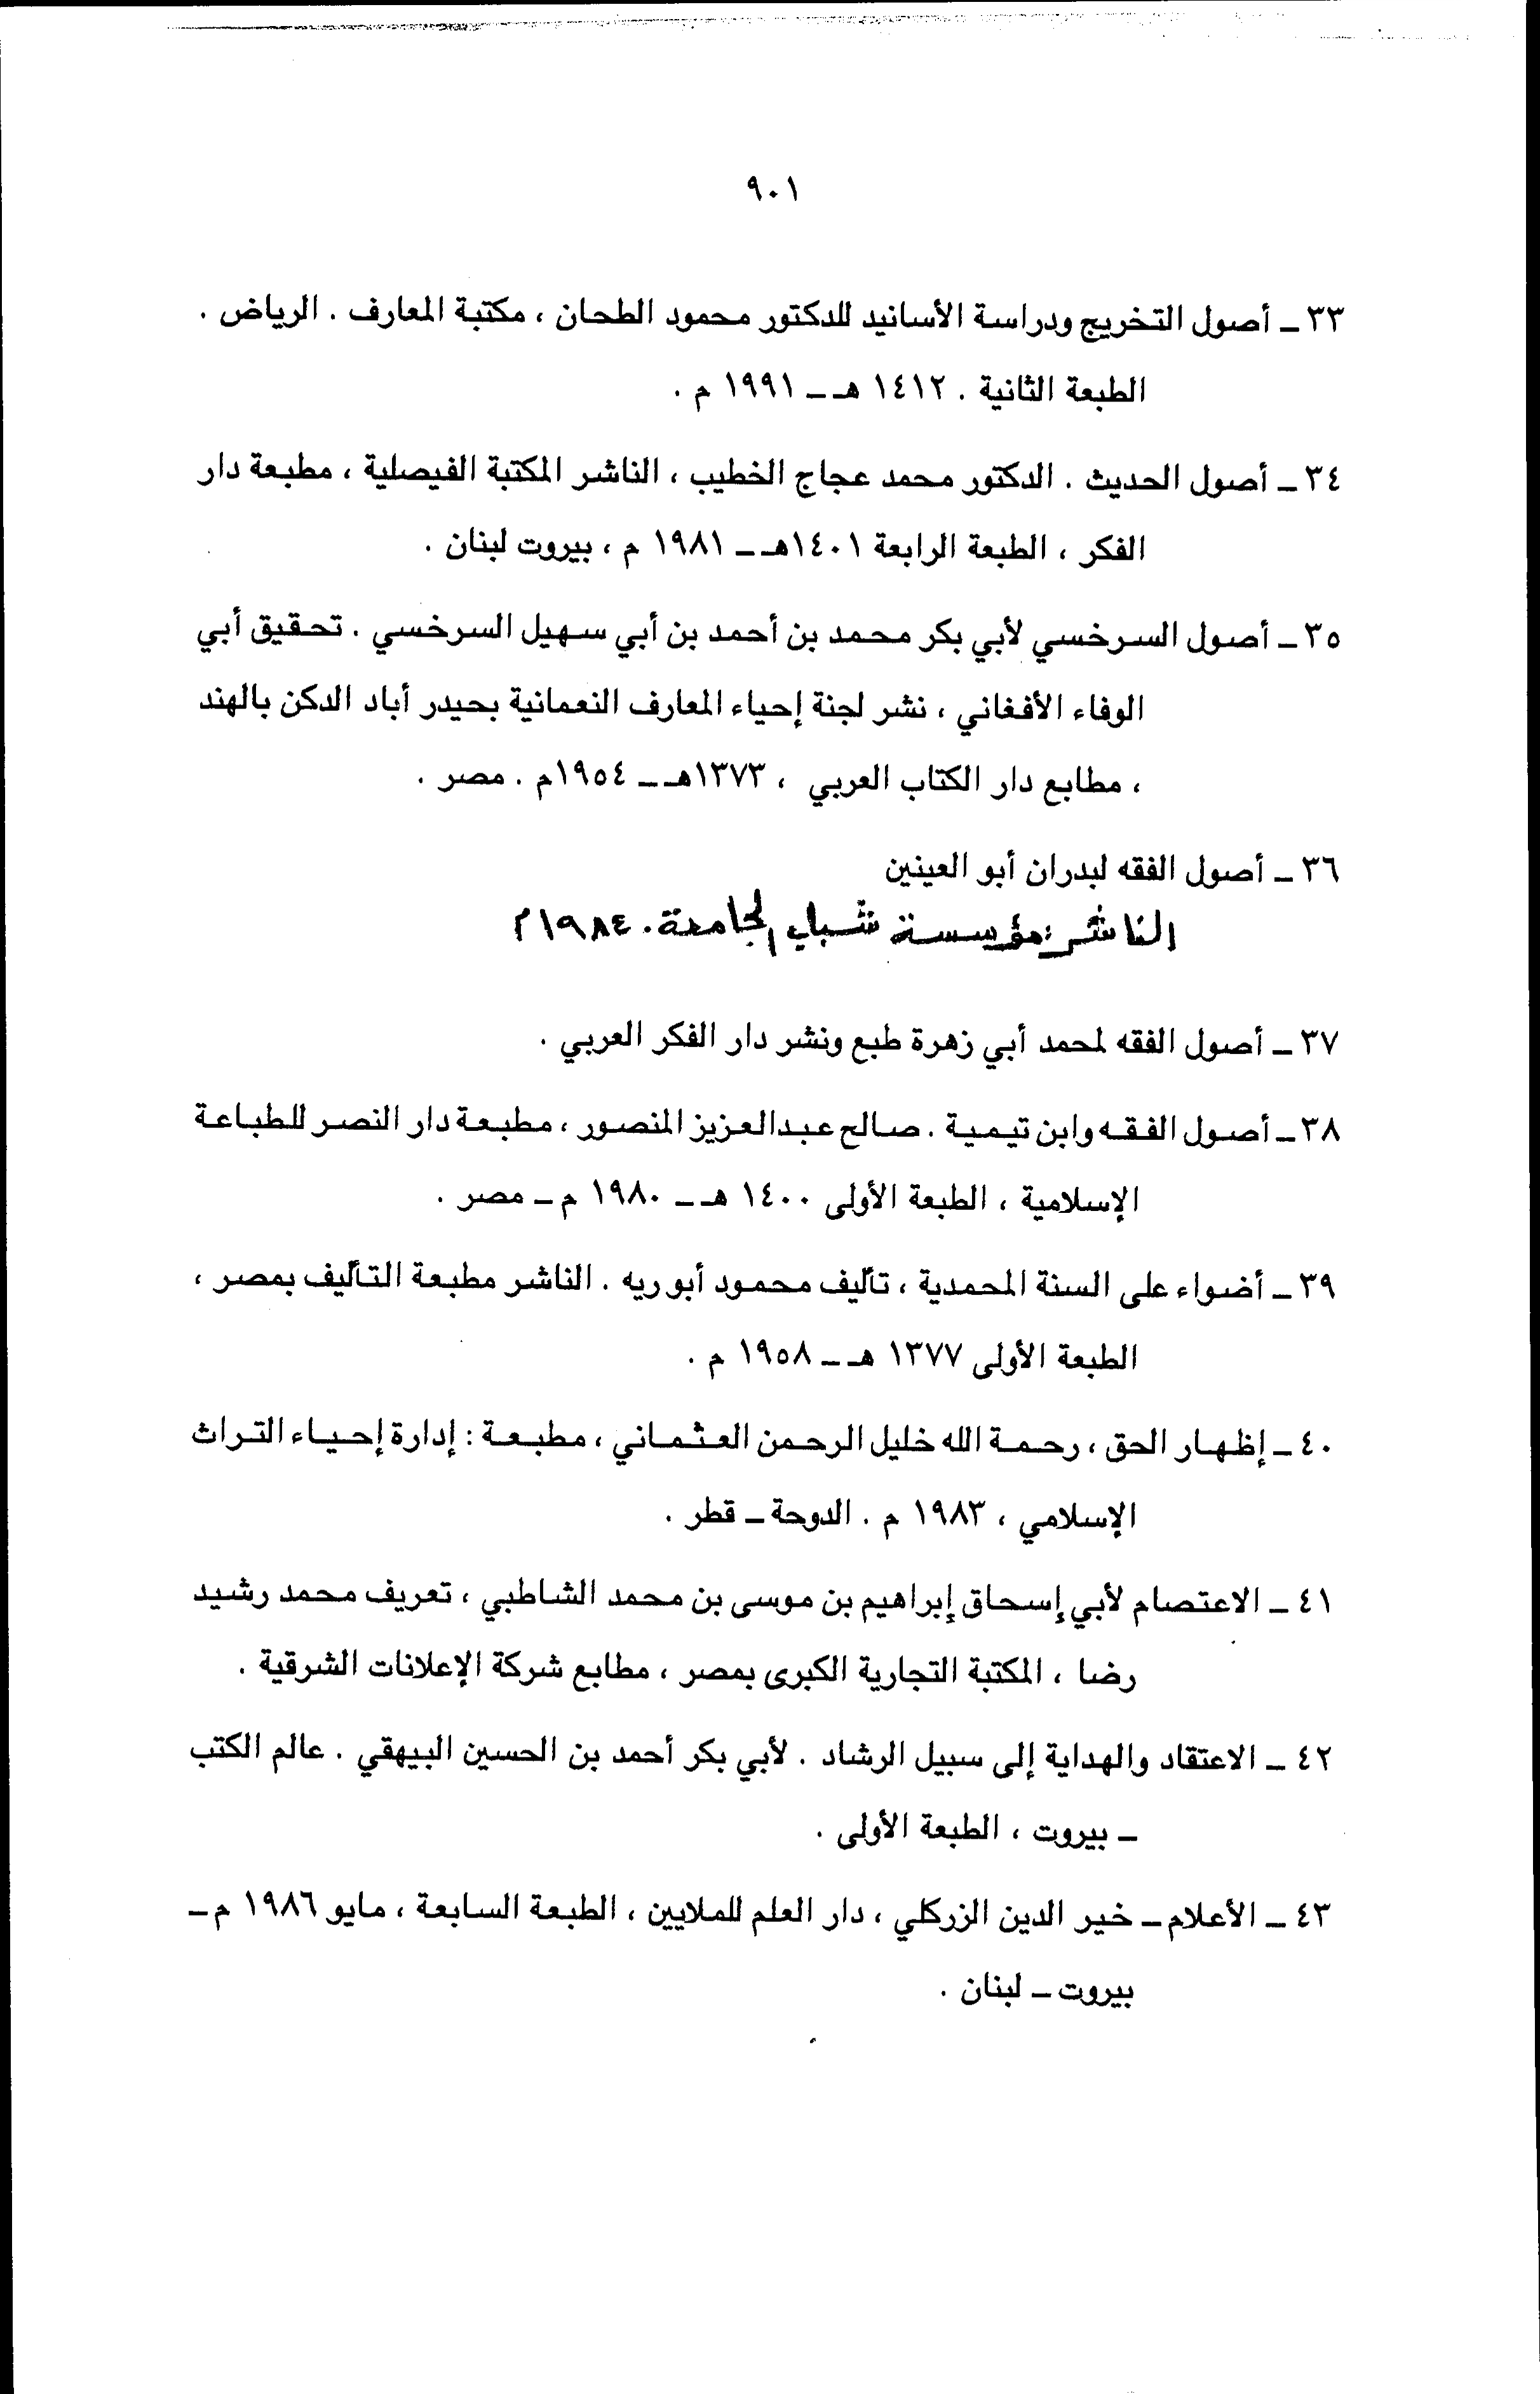 ٩٠١
٣٣ ـ أصول التخريج ودراسة الأسانيد للدكتور محمود الطحان ، مكتبة المعارف . الرياض .
الطبعة الثانية . ١٤١٢ هـ ـ ١٩٩١ م .
٣٤ ـ أصول الحديث . الدكتور محمد عجاج الخطيب ، الناشر المكتبة الفيصلية ، مطبعة دار
الفكر ، الطبعة الرابعة ١٤٠١هـ ـ ١٩٨١ م ، بيروت لبنان .
٣٥ ـ أصول السرخسي لأبي بكر محمد بن أحمد بن أبي سهيل السرخسي . تحقيق أبي
الوفاء الأفغاني ، نشر لجنة إحياء المعارف النعمانية بحيدر أباد الدكن بالهند
، مطابع دار الكتاب العربي ، ١٣٧٣هـ ـ ١٩٥٤م . مصر .
٣٦ ـ أصول الفقه لبدران أبو العينين
الناشر: مؤسسة شباب الجامعة. ١٩٨٤م
٣٧ ـ أصول الفقه لمحمد أبي زهرة طبع ونشر دار الفكر العربي .
٣٨ ـ أصول الفقه وابن تيمية . صالح عبدالعزيز المنصور ، مطبعة دار النصر للطباعة
الإسلامية ، الطبعة الأولى ١٤٠٠ هـ ـ ١٩٨٠ م ـ مصر .
٣٩ ـ أضواء على السنة المحمدية ، تأليف محمود أبو ريه . الناشر مطبعة التأليف بمصر ،
الطبعة الأولى ١٣٧٧ هـ ـ ١٩٥٨ م .
٤٠ ـ إظهار الحق ، رحمة الله خليل الرحمن العثماني ، مطبعة : إدارة إحياء التراث
الإسلامي ، ١٩٨٣ م . الدوحة ـ قطر .
٤١ ـ الاعتصام لأبي إسحاق إبراهيم بن موسى بن محمد الشاطبي ، تعريف محمد رشيد
رضا ، المكتبة التجارية الكبرى بمصر ، مطابع شركة الإعلانات الشرقية .
٤٢ ـ الاعتقاد والهداية إلى سبيل الرشاد . لأبي بكر أحمد بن الحسين البيهقي . عالم الكتب
ـ بيروت ، الطبعة الأولى .
٤٣ ـ الأعلام ـ خير الدين الزركلي ، دار العلم للملايين ، الطبعة السابعة ، مايو ١٩٨٦ م ـ
بيروت ـ لبنان .